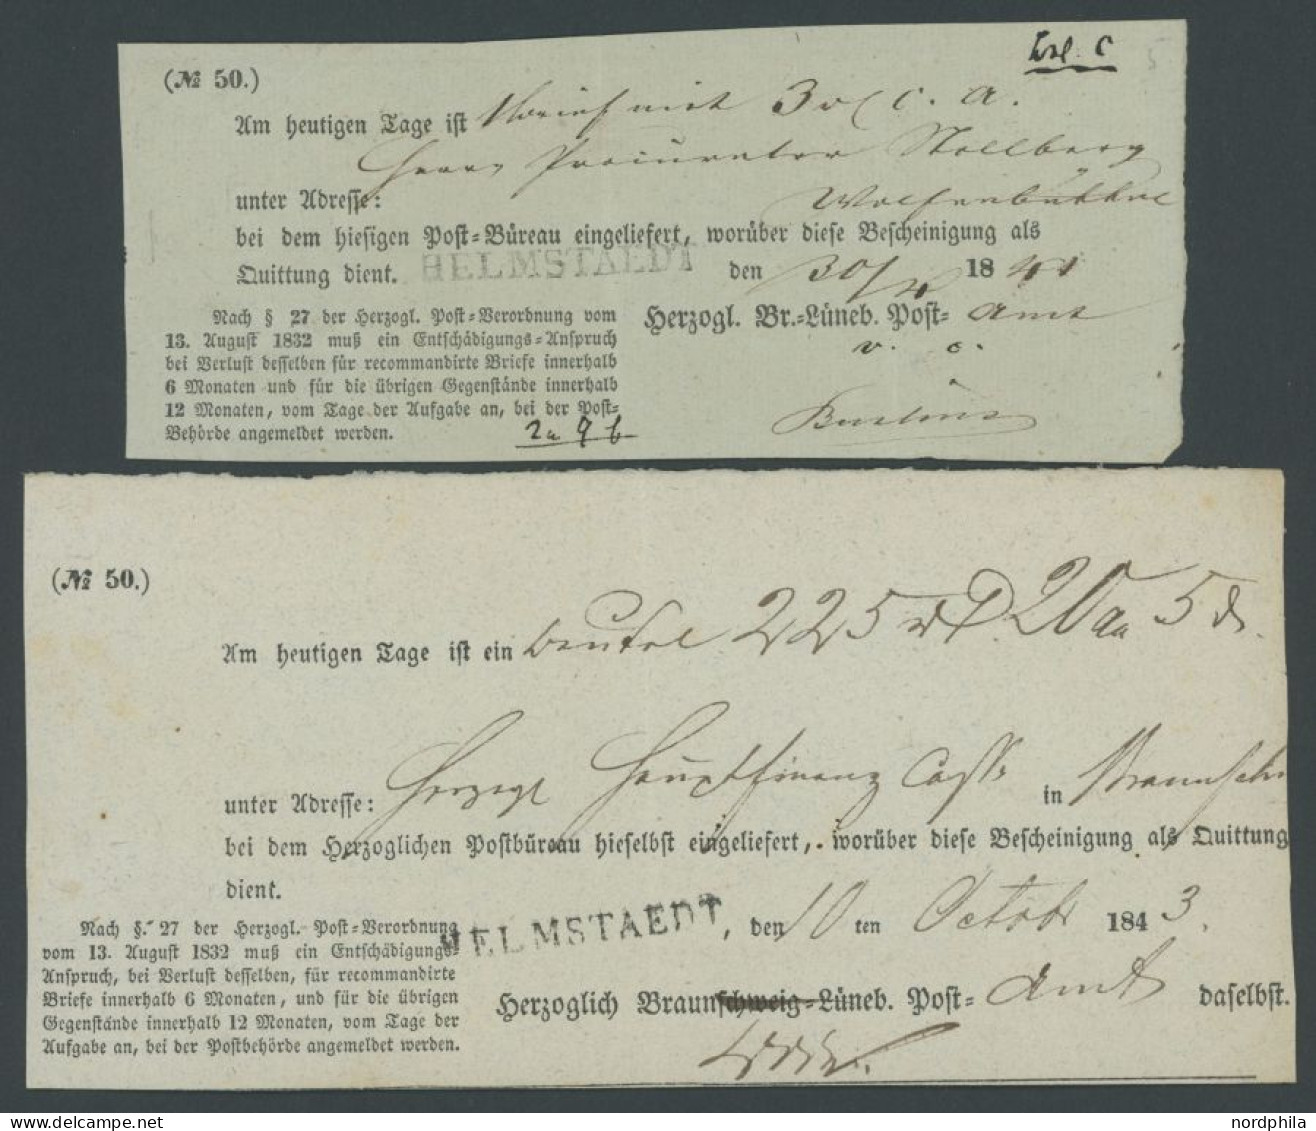 (№ 50.)
Am heutigen Tage ist 1 Brief mit 3 c. a.
Herrn Procurator Stollberg
unter Adresse: Wolfenbüttel
bei dem hiesigen Post-Büreau eingeliefert, worüber diese Bescheinigung als
Quittung dient. HELMSTAEDT den 30/ 18 41
Nach § 27 der Herzogl. Post-Verordnung vom
13. August 1832 muß ein Entschädigungs-Anspruch
bei Verlust desselben für recommandirte Briefe innerhalb
6 Monaten und für die übrigen Gegenstände innerhalb
12 Monaten, vom Tage der Aufgabe an, bei der Post-
Behörde angemeldet werden.
Herzogl. Br.-Lüneb. Post- Amt
v. c.
(№ 50.)
Am heutigen Tage ist ein Beutel 225 20 5
unter Adresse: Herzogl Hauptfinanz Casse in Braunschw
bei dem Herzoglichen Postbüreau hieselbst eingeliefert, worüber diese Bescheinigung als Quittung
dient.
HELMSTAEDT, den 10 ten October 184 3.
Nach §. 27 der Herzogl. Post-Verordnung
vom 13. August 1832 muß ein Entschädigungs-
Anspruch, bei Verlust desselben, für recommandirte
Briefe innerhalb 6 Monaten, und für die übrigen
Gegenstände innerhalb 12 Monaten, vom Tage der
Aufgabe an, bei der Postbehörde angemeldet werden.
Herzoglich Braunschweig-Lüneb. Post- Amt daselbst.
nordphila.com